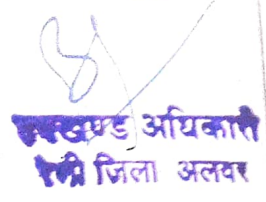 उपखण्ड अधिकारी
रैणी जिला अलवर